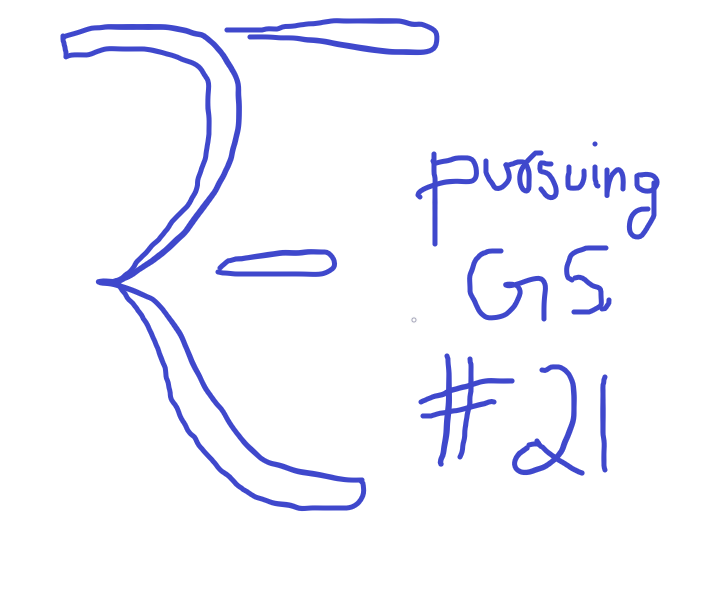 pursuing
GS
#21